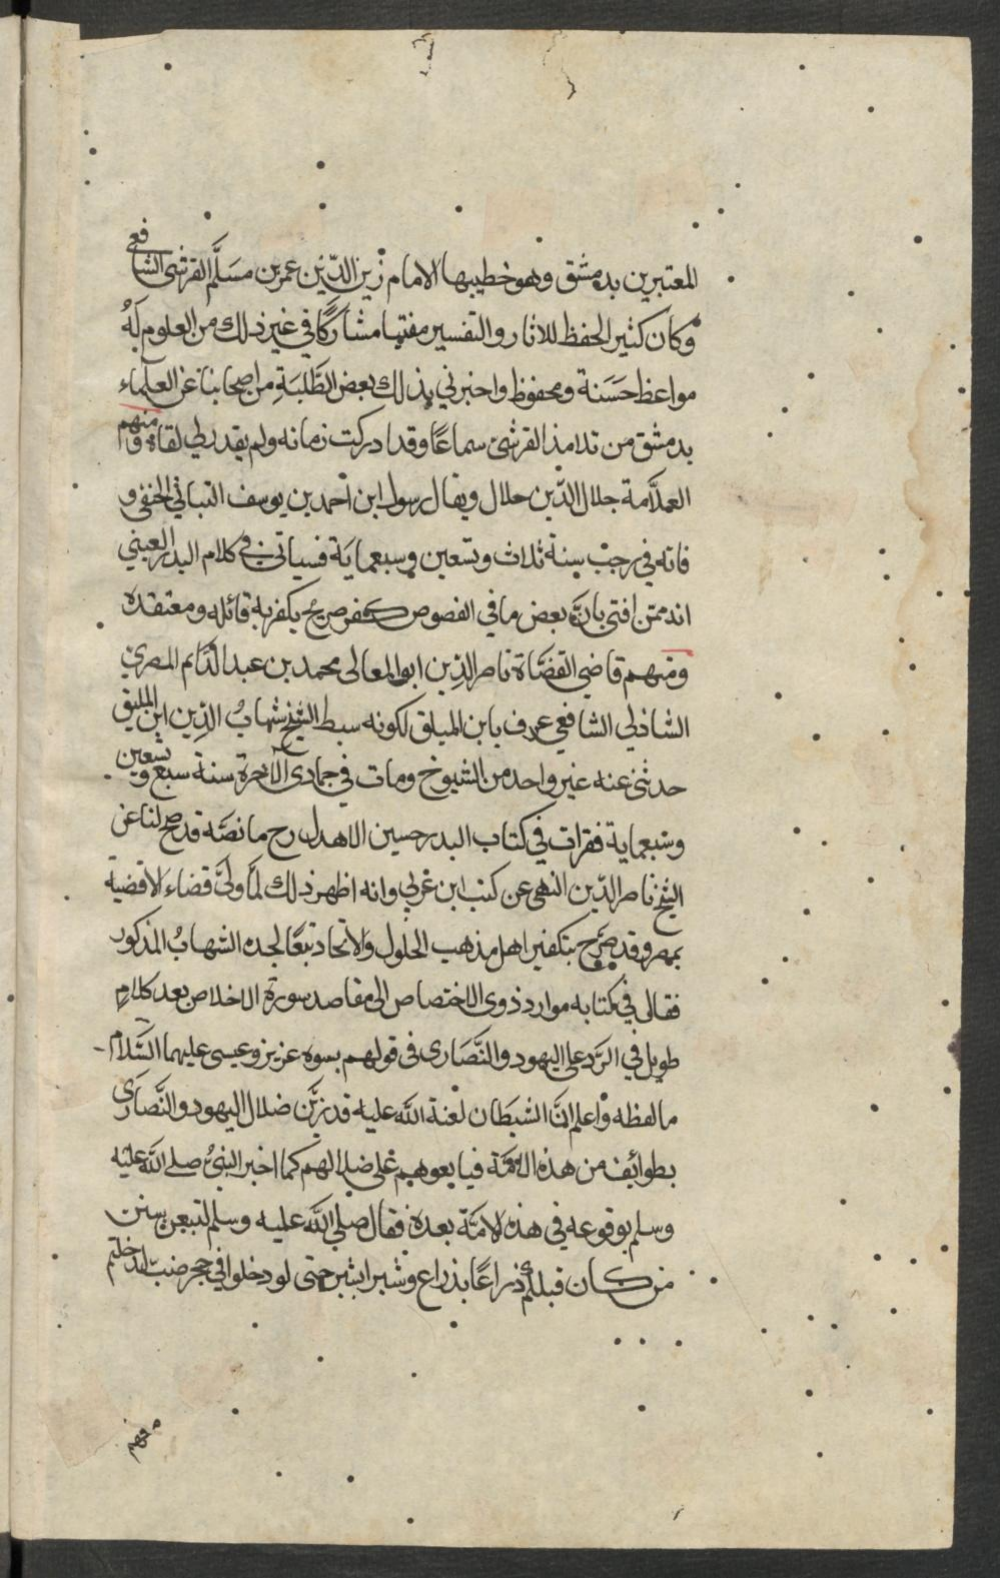 المعتبرين بدمشق وهو خطيبها الامام زين الدّين عمر بن مسَلَّم القرشى الشافعى
وكان كثير الحفظ للاثار والتفسير مفتيها مشاركًا في غير ذلك من العلوم لَهُ
مواعظ حَسَنة ومحفوظ واخبرني بذلك بعض الطَّلبَةِ من اصحابنا عن العلماء
بدمشق من تلامذ القرشى سماعًا وقد ادركت زمانه ولم يقدر لي لقاه ومنهم
العلاَّمة جلال الدّين جلال ويقال رسول ابن أحمد بن يوسف التباني الحنفي و
فاته في رجب سنة ثلاث وتسعين وسبعماية فسياتى في كلام البدر العيني
انه ممن افتى بانَّ بعض ما في الفصوص كفر صريح يكفر به قائله ومعتقده
ومنهم قاضي القضَّاة ناصر الدِين ابو المعالى محمد بن عبد الدَّايم المصري
الشاذلي الشافعي عرف بابن الميلق لكونه سبط الشيخ شهابُ الدِين ابن الميلق
حدثنى عنه غير واحد من الشيوخ ومات في جمادى الآخرة سنة سبع وتسعين
وسبعماية فقرات في كتاب البدر حسين الاهدل رح ما نصَّه قد صح لنا عن
الشيخ ناصر الدّين النهى عن كتب ابن عربي وانه اظهر ذلك لمَّا ولىَّ قضاء الاقضية
بمصر وقد صرَّح بتكفير اهل مذهب الحلول والاتحاد تبعًا لجده الشهابُ المذكور
فقال في كتابه موارد ذوى الاختصاص الى مقاصد سورة الاخلاص بعد كلامٍ
طويل في الرَّد على اليهود والنَّصَارى فى قولهم بنبوه عزيز وعيسى عليهما السَّلام
ما لفظه واعلم انَّ الشيطان لعنة الله عليه قد زيَّن ضلال اليهود والنَّصَارى
بطوائف من هذه الامَّة فيا يعوهم على ضلالهم كما اخبر النبىُ صلى الله عليه
وسلم بوقوعه في هذه الامَّة بعده فقال صلي الله عليه وسلم لتتبعن سنن
من كان قبلكم ذراعًا بذراع وشبرا بشبر حتى لو دخلوا في جحر ضب لدخلتم